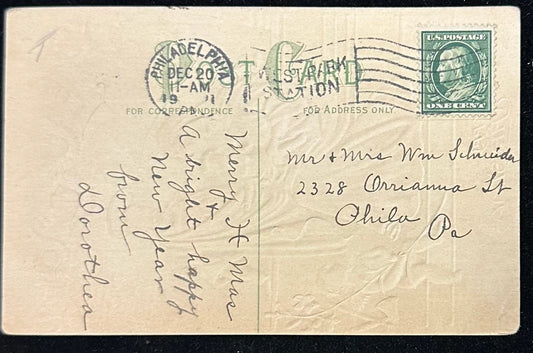 POST CARD
PHILADELPHIA
DEC 20
11-AM
19 1
PA
WEST PARK
STATION
U.S. POSTAGE
ONE CENT
FOR CORRESPONDENCE
FOR ADDRESS ONLY
Merry X Mas
+
A bright happy
New Year
from
Dorothea
Mr & Mrs Wm Schneider
2328 Orrianna St
Phila
Pa